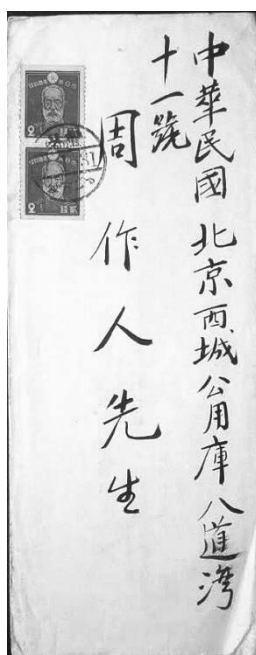 中華民國 北京西城公用庫八道灣
十一號
周作人先生